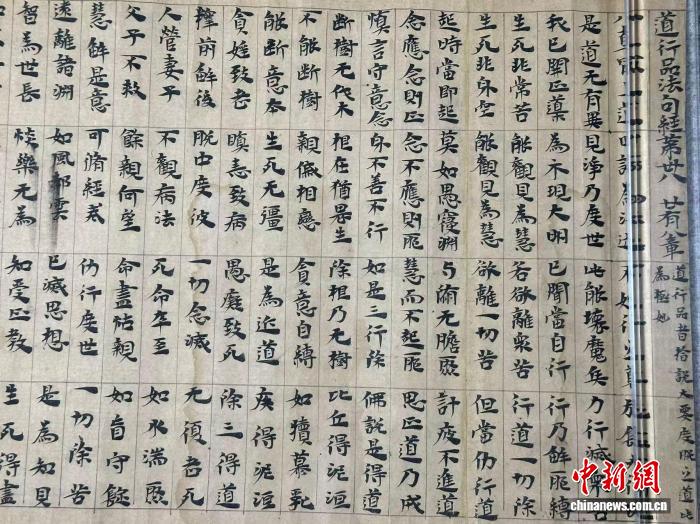 道行品法句經第卅八 廿有章
道行品者旨說大要度脫之道此
為極妙
是道无有異 見淨乃度世 此能壞魔兵 力行滅
我已開正道 為示現大明 已聞當自行 行乃解邪縛
生死非常苦 能觀見為慧 若欲離眾苦 行道一切除
生死非身空 能觀見為慧 欲離一切苦 但當仂行道
起時當即起 莫如愚覆淵 与 无瞻聚 計疲不進道
念應念則正 念不應則邪 慧而不起邪 思正道乃成
慎言守意念 身不善不行 如是三行除 佛說是得道
斷樹无伐本 根在猶畏生 除根乃无樹 比丘得泥洹
不能斷樹 親戚相戀 貪意自縛 如犢慕乳
能斷意本 生死无彊 是為近道 疾得泥洹
貪婬致老 瞋恚致病 愚癡致死 除三得道
釋前解後 脫中度彼 一切念滅 无復老死
人營妻子 不觀病法 死命卒至 如水湍聚
父子不救 餘親何望 命盡怙親 如盲守燈
慧解是意 可脩經戒 仂行度世 一切除苦
遠離諸淵 如風却雲 已滅思想 是為知見
智為世長 惔樂无為 知受正教 生死得盡
中新网
chinanews.com